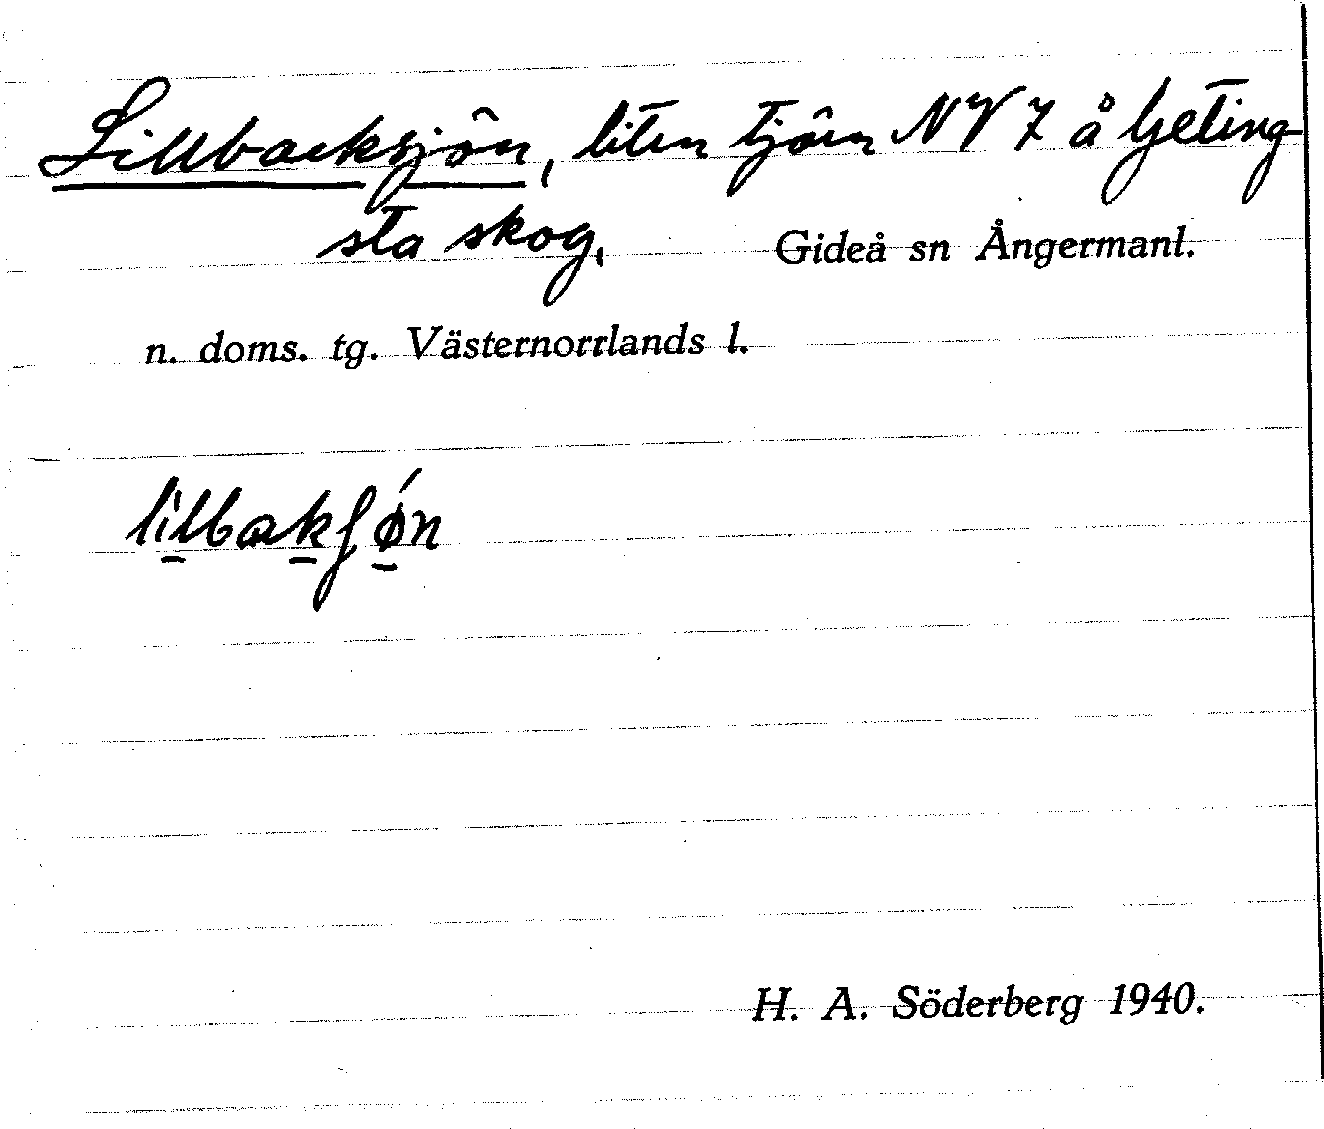 Lillbacksjön, liten tjärn NV 7 å Geting
sta skog. Gideå sn Ångermanl.
n. doms. tg. Västernorrlands l.
lilbakʃøn
H. A. Söderberg 1940.